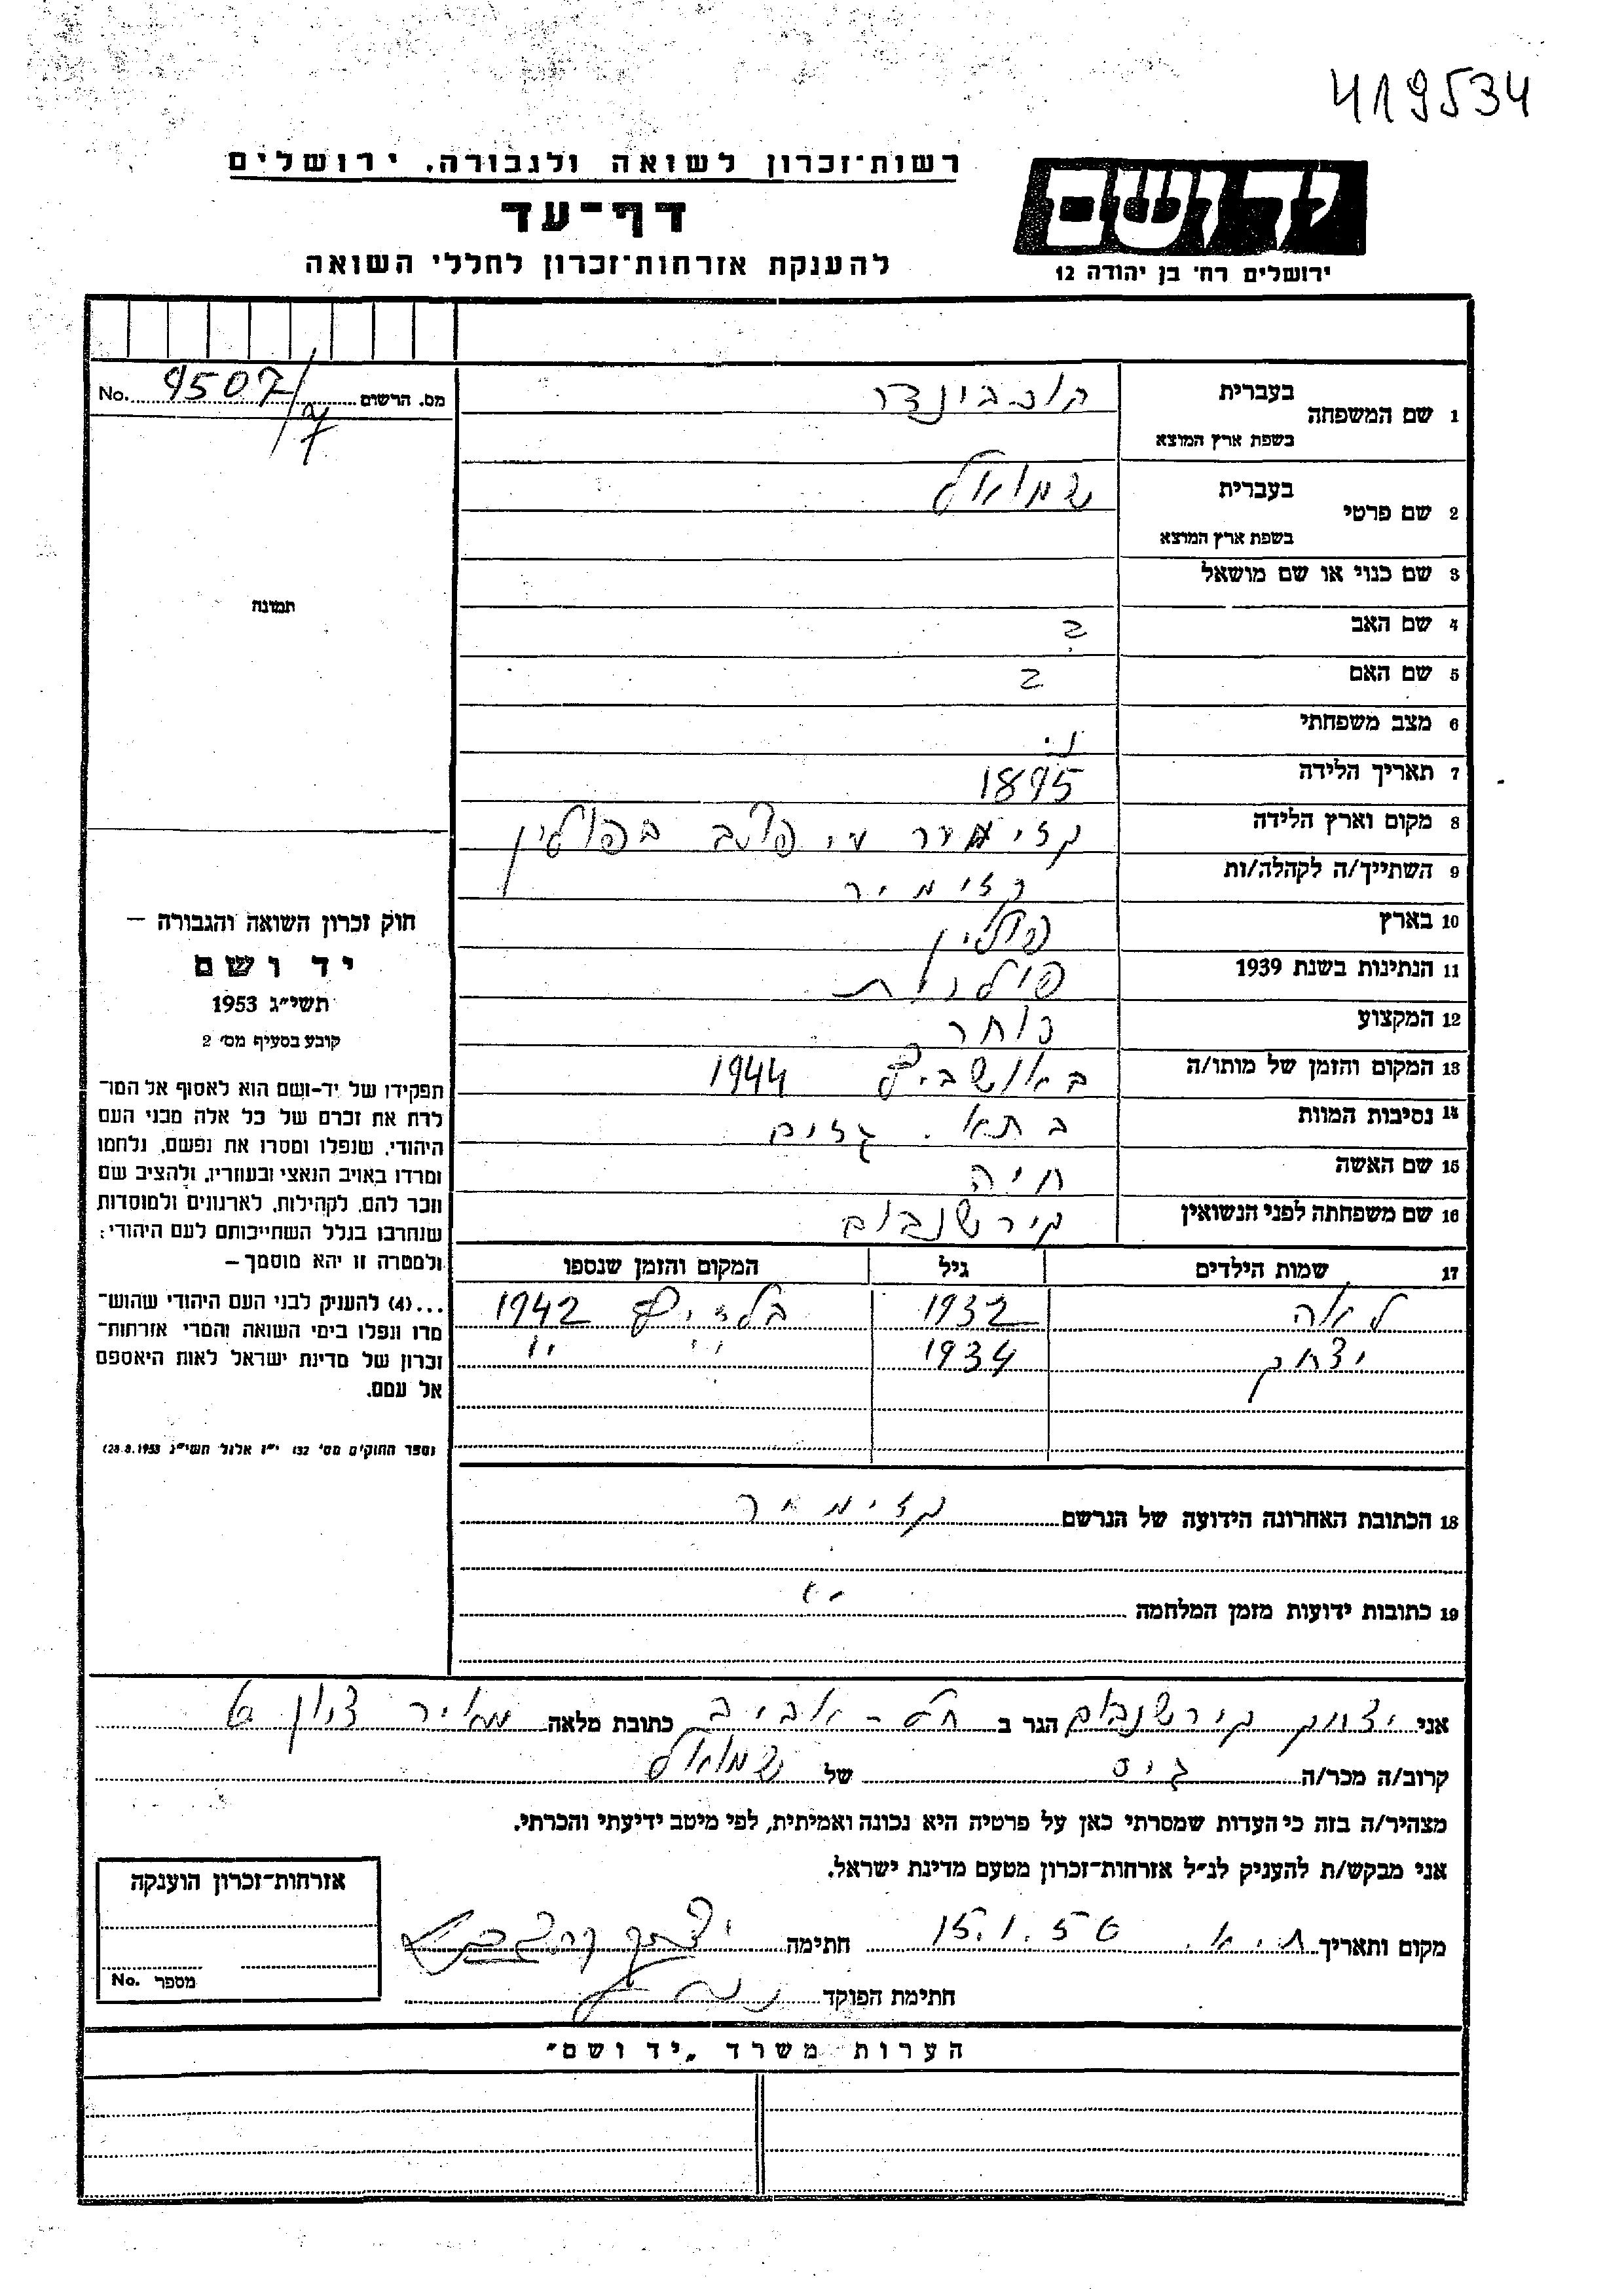 419534
רשות־זכרון לשואה ולגבורה, ירושלים
דף־עד
להענקת אזרחות־זכרון לחללי השואה
יד ושם
ירושלים רח' בן יהודה 12
מס. הרשום 9507/ No.
1 שם המשפחה בעברית
בשפת ארץ המוצא
2 שם פרטי בעברית שמואל
בשפת ארץ המוצא
3 שם כנוי או שם מושאל
4 שם האב ?
5 שם האם ?
6 מצב משפחתי נ.
7 תאריך הלידה 1895
8 מקום וארץ הלידה קזימיר בפולין
9 השתייך/ה לקהלה/ות קזימיר
10 בארץ פולין
11 הנתינות בשנת 1939 פולנית
12 המקצוע סוחר
13 המקום והזמן של מותו/ה באושביץ 1944
14 נסיבות המוות בתא. גזים
15 שם האשה חיה
16 שם משפחתה לפני הנשואין קירשנבוים
17 שמות הילדים גיל המקום והזמן שנספו
לאה 1932 בלזיץ 1942
יצחק 1934 " "
18 הכתובת האחרונה הידועה של הנרשם קזימיר
19 כתובות ידועות מזמן המלחמה "
תמונה
חוק זכרון השואה והגבורה –
יד ושם
תשי"ג 1953
קובע בסעיף מס' 2
תפקידו של יד-ושם הוא לאסוף אל המו־
לדת את זכרם של כל אלה מבני העם
היהודי, שנפלו ומסרו את נפשם, נלחמו
ומרדו באויב הנאצי ובעוזריו, ולהציב שם
וזכר להם, לקהילות, לארגונים ולמוסדות
שנחרבו בגלל השתייכותם לעם היהודי;
ולמטרה זו יהא מוסמך –
...(4) להעניק לבני העם היהודי שהוש־
מדו ונפלו בימי השואה והמרי אזרחות־
זכרון של מדינת ישראל לאות היאספם
אל עמם.
(ספר החוקים מס' 132 י"ז אלול תשי"ג 28.8.1953)
אני יצחק קירשנבוים הגר ב תל-אביב כתובת מלאה
קרוב/ה מכר/ה גיס של שמואל
מצהיר/ה בזה כי העדות שמסרתי כאן על פרטיה היא נכונה ואמיתית, לפי מיטב ידיעתי והכרתי.
אני מבקש/ת להעניק לנ"ל אזרחות־זכרון מטעם מדינת ישראל.
מקום ותאריך ת.א. 15.1.56 חתימה
חתימת הפוקד
אזרחות־זכרון הוענקה
מספר No.
הערות משרד „יד ושם"